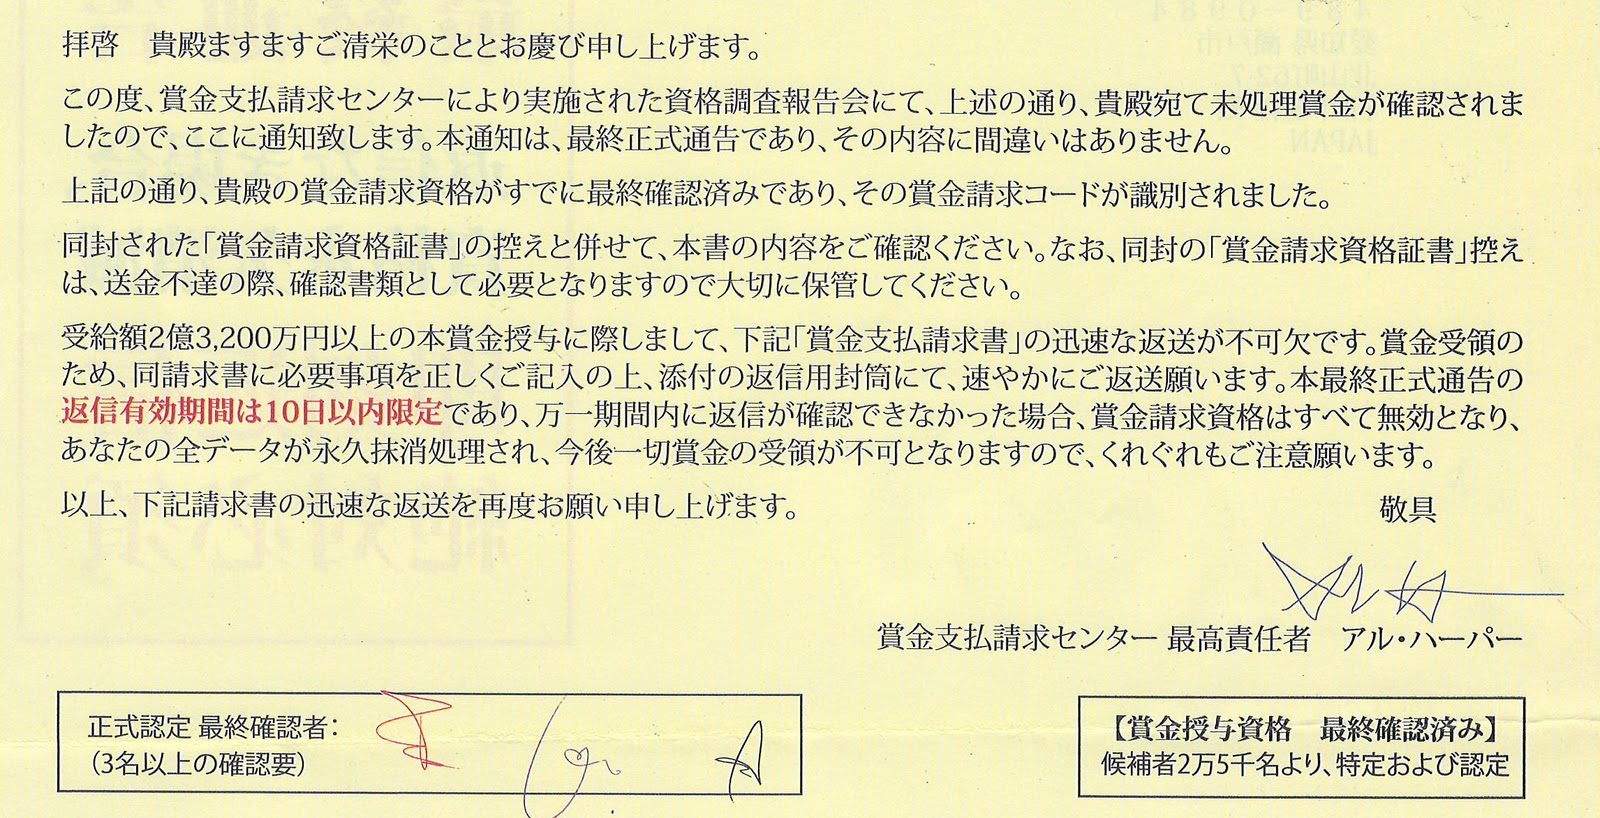 拝啓　貴殿ますますご清栄のこととお慶び申し上げます。
この度、賞金支払請求センターにより実施された資格調査報告会にて、上述の通り、貴殿宛て未処理賞金が確認されま
したので、ここに通知致します。本通知は、最終正式通告であり、その内容に間違いはありません。
上記の通り、貴殿の賞金請求資格がすでに最終確認済みであり、その賞金請求コードが識別されました。
同封された「賞金請求資格証書」の控えと併せて、本書の内容をご確認ください。なお、同封の「賞金請求資格証書」控え
は、送金不達の際、確認書類として必要となりますので大切に保管してください。
受給額2億3,200万円以上の本賞金授与に際しまして、下記「賞金支払請求書」の迅速な返送が不可欠です。賞金受領の
ため、同請求書に必要事項を正しくご記入の上、添付の返信用封筒にて、速やかにご返送願います。本最終正式通告の
返信有効期間は10日以内限定であり、万一期間内に返信が確認できなかった場合、賞金請求資格はすべて無効となり、
あなたの全データが永久抹消処理され、今後一切賞金の受領が不可となりますので、くれぐれもご注意願います。
以上、下記請求書の迅速な返送を再度お願い申し上げます。　敬具
賞金支払請求センター 最高責任者　アル・ハーパー
正式認定 最終確認者：
（3名以上の確認要）
【賞金授与資格　最終確認済み】
候補者2万5千名より、特定および認定